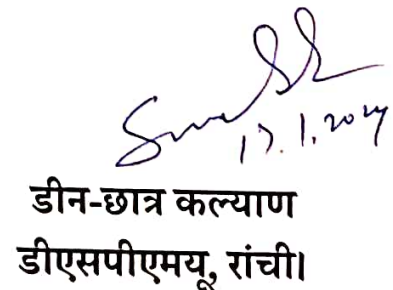 17.1.2024
डीन-छात्र कल्याण
डीएसपीएमयू, रांची।